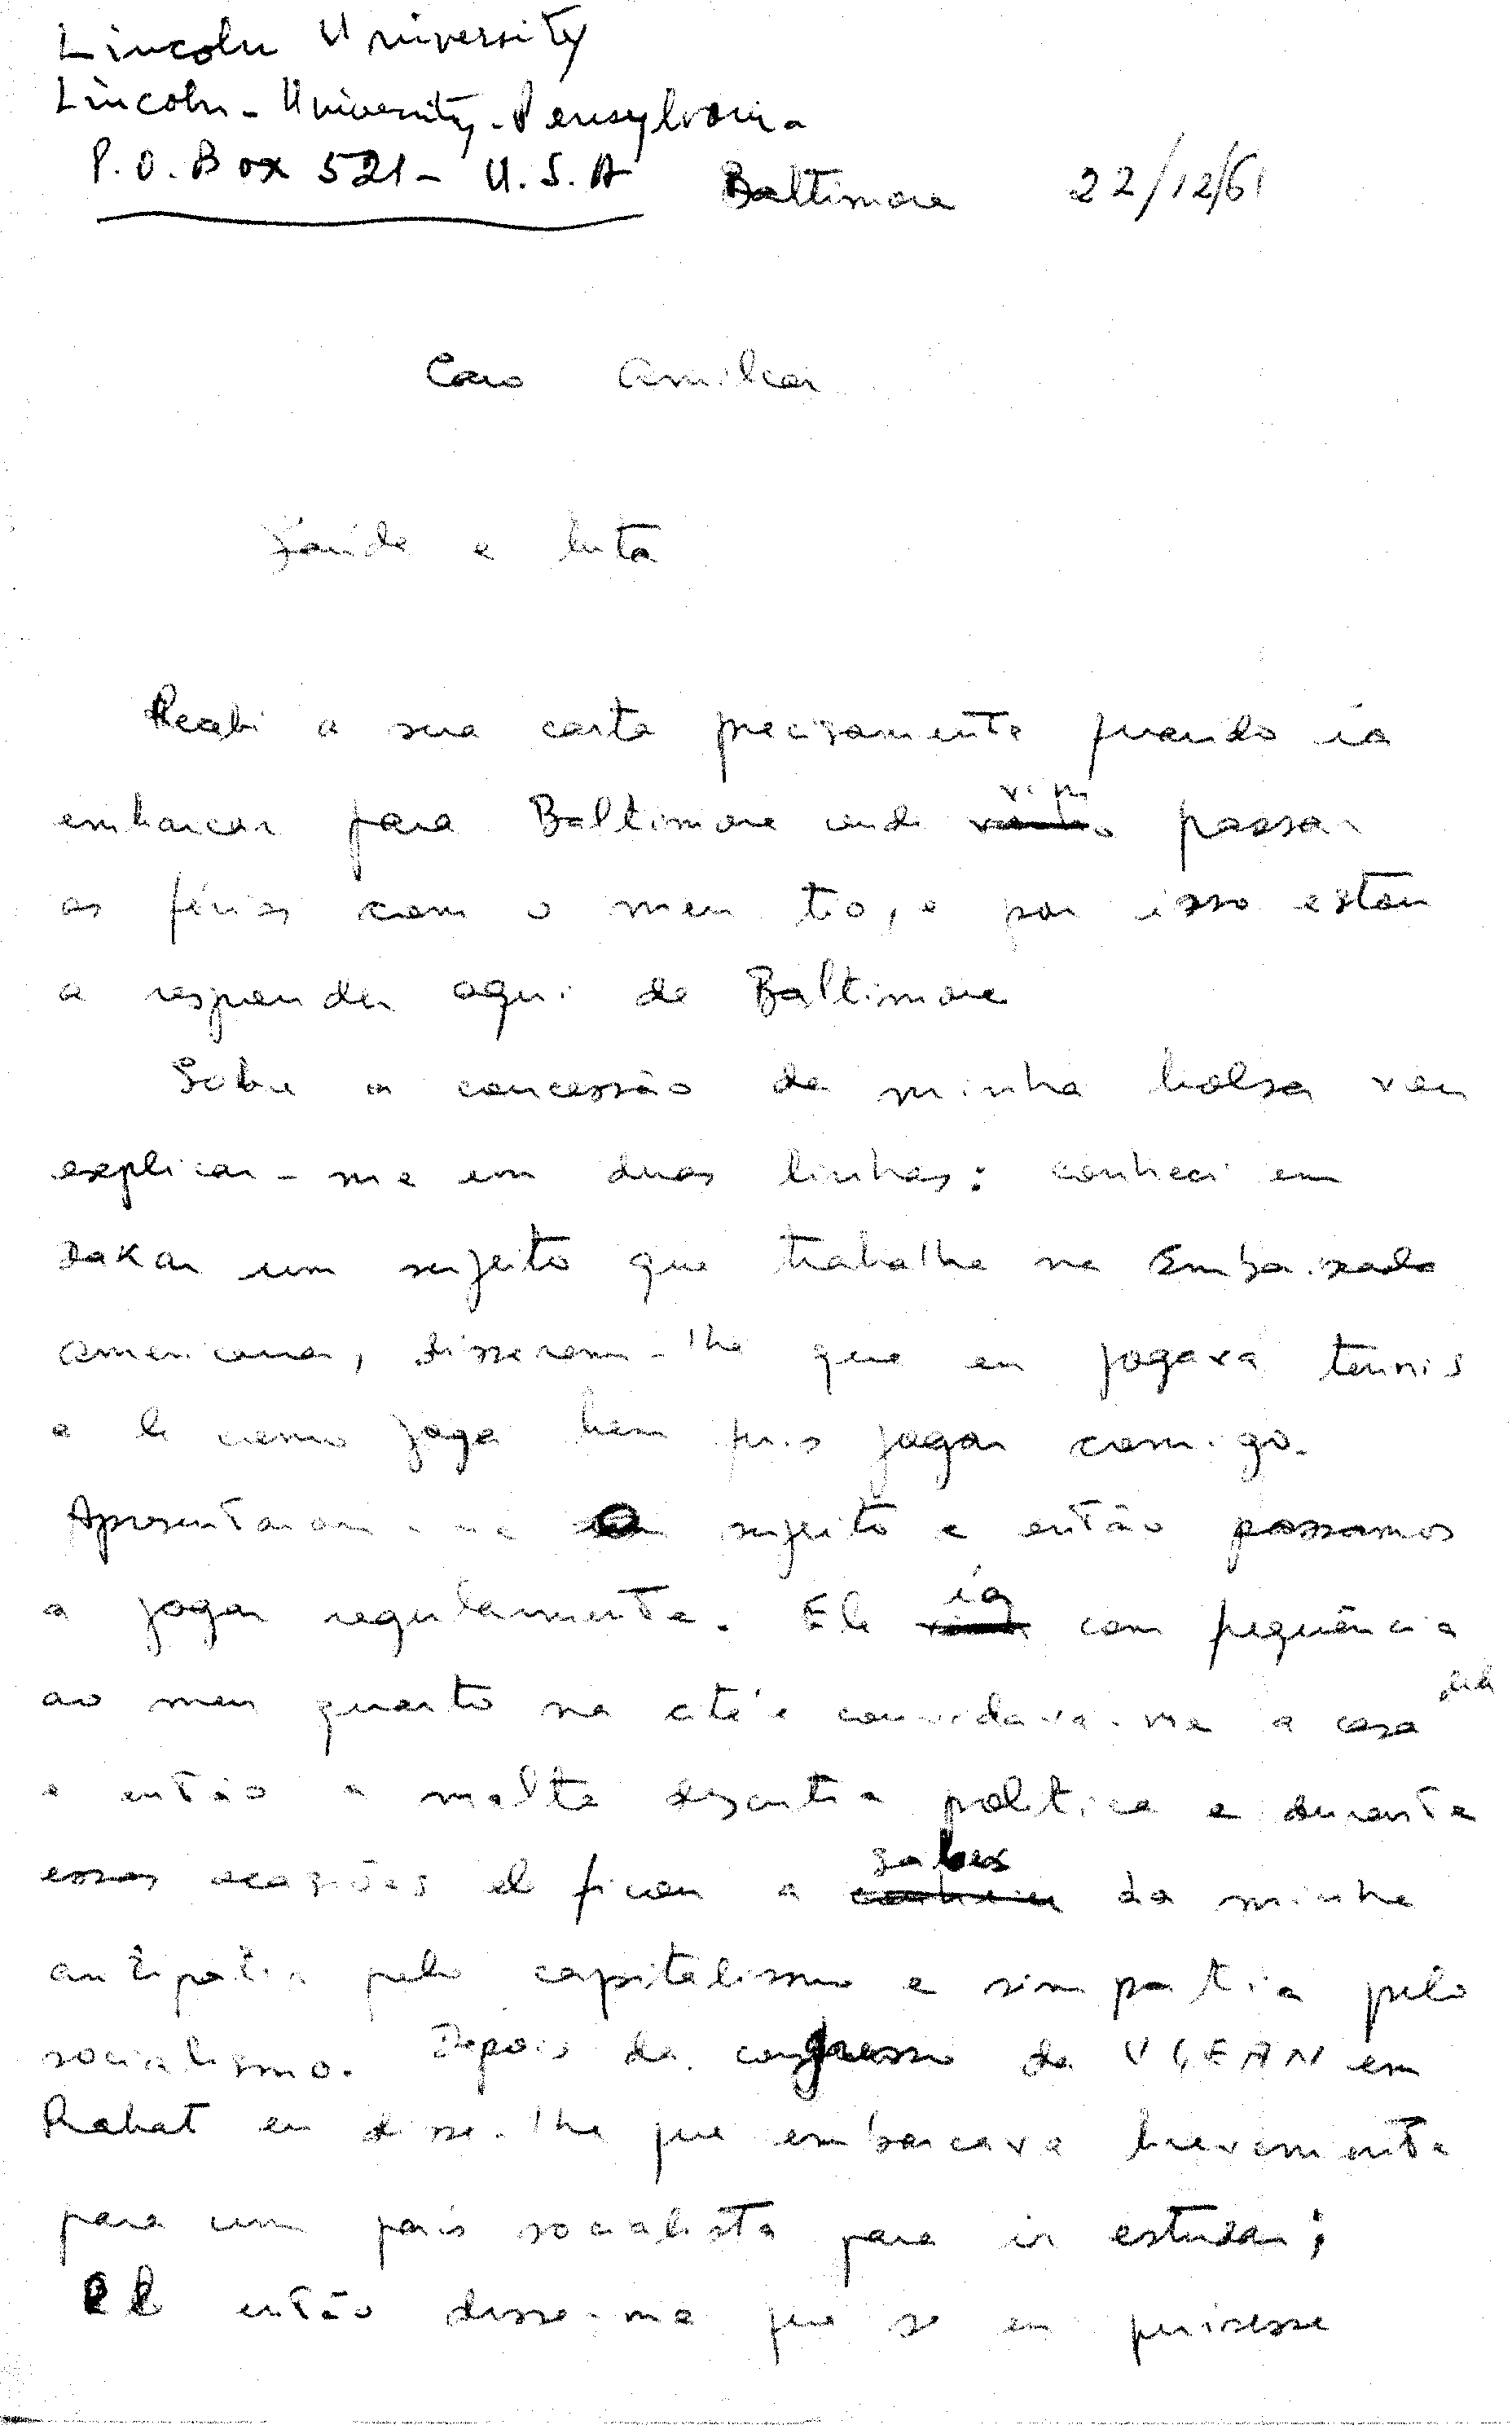 Lincoln University
Lincoln - University - Pensylvania
P.O. Box 521 - U.S.A
Baltimore 22/12/61
Caro Amilcar
Saúde e luta
Recebi a sua carta precisamente quando ia
embarcar para Baltimore onde vim passar
as férias com o meu tio, e por isso estou
a responder aqui de Baltimore
Sobre a concessão da minha bolsa vou
explicar-me em duas linhas: conheci em
Dakar um sujeito que trabalha na Embaixada
americana, disseram-lhe que eu jogava tennis
e ele como joga bem quis jogar comigo.
Apresentaram-me o sujeito e então passamos
a jogar regularmente. Ele ia com frequência
ao meu quarto na cité e convidava-me a casa
e então a malta discutia politica e durante
essas ocasiões el ficou a saber da minha
antipatia pelo capitalismo e simpatia pelo
socialismo. Depois do congresso da UGEAN em
Rabat eu disse-lhe que embarcava brevemente
para um pais socialista para ir estudar;
El então disse-me que se eu quisesse